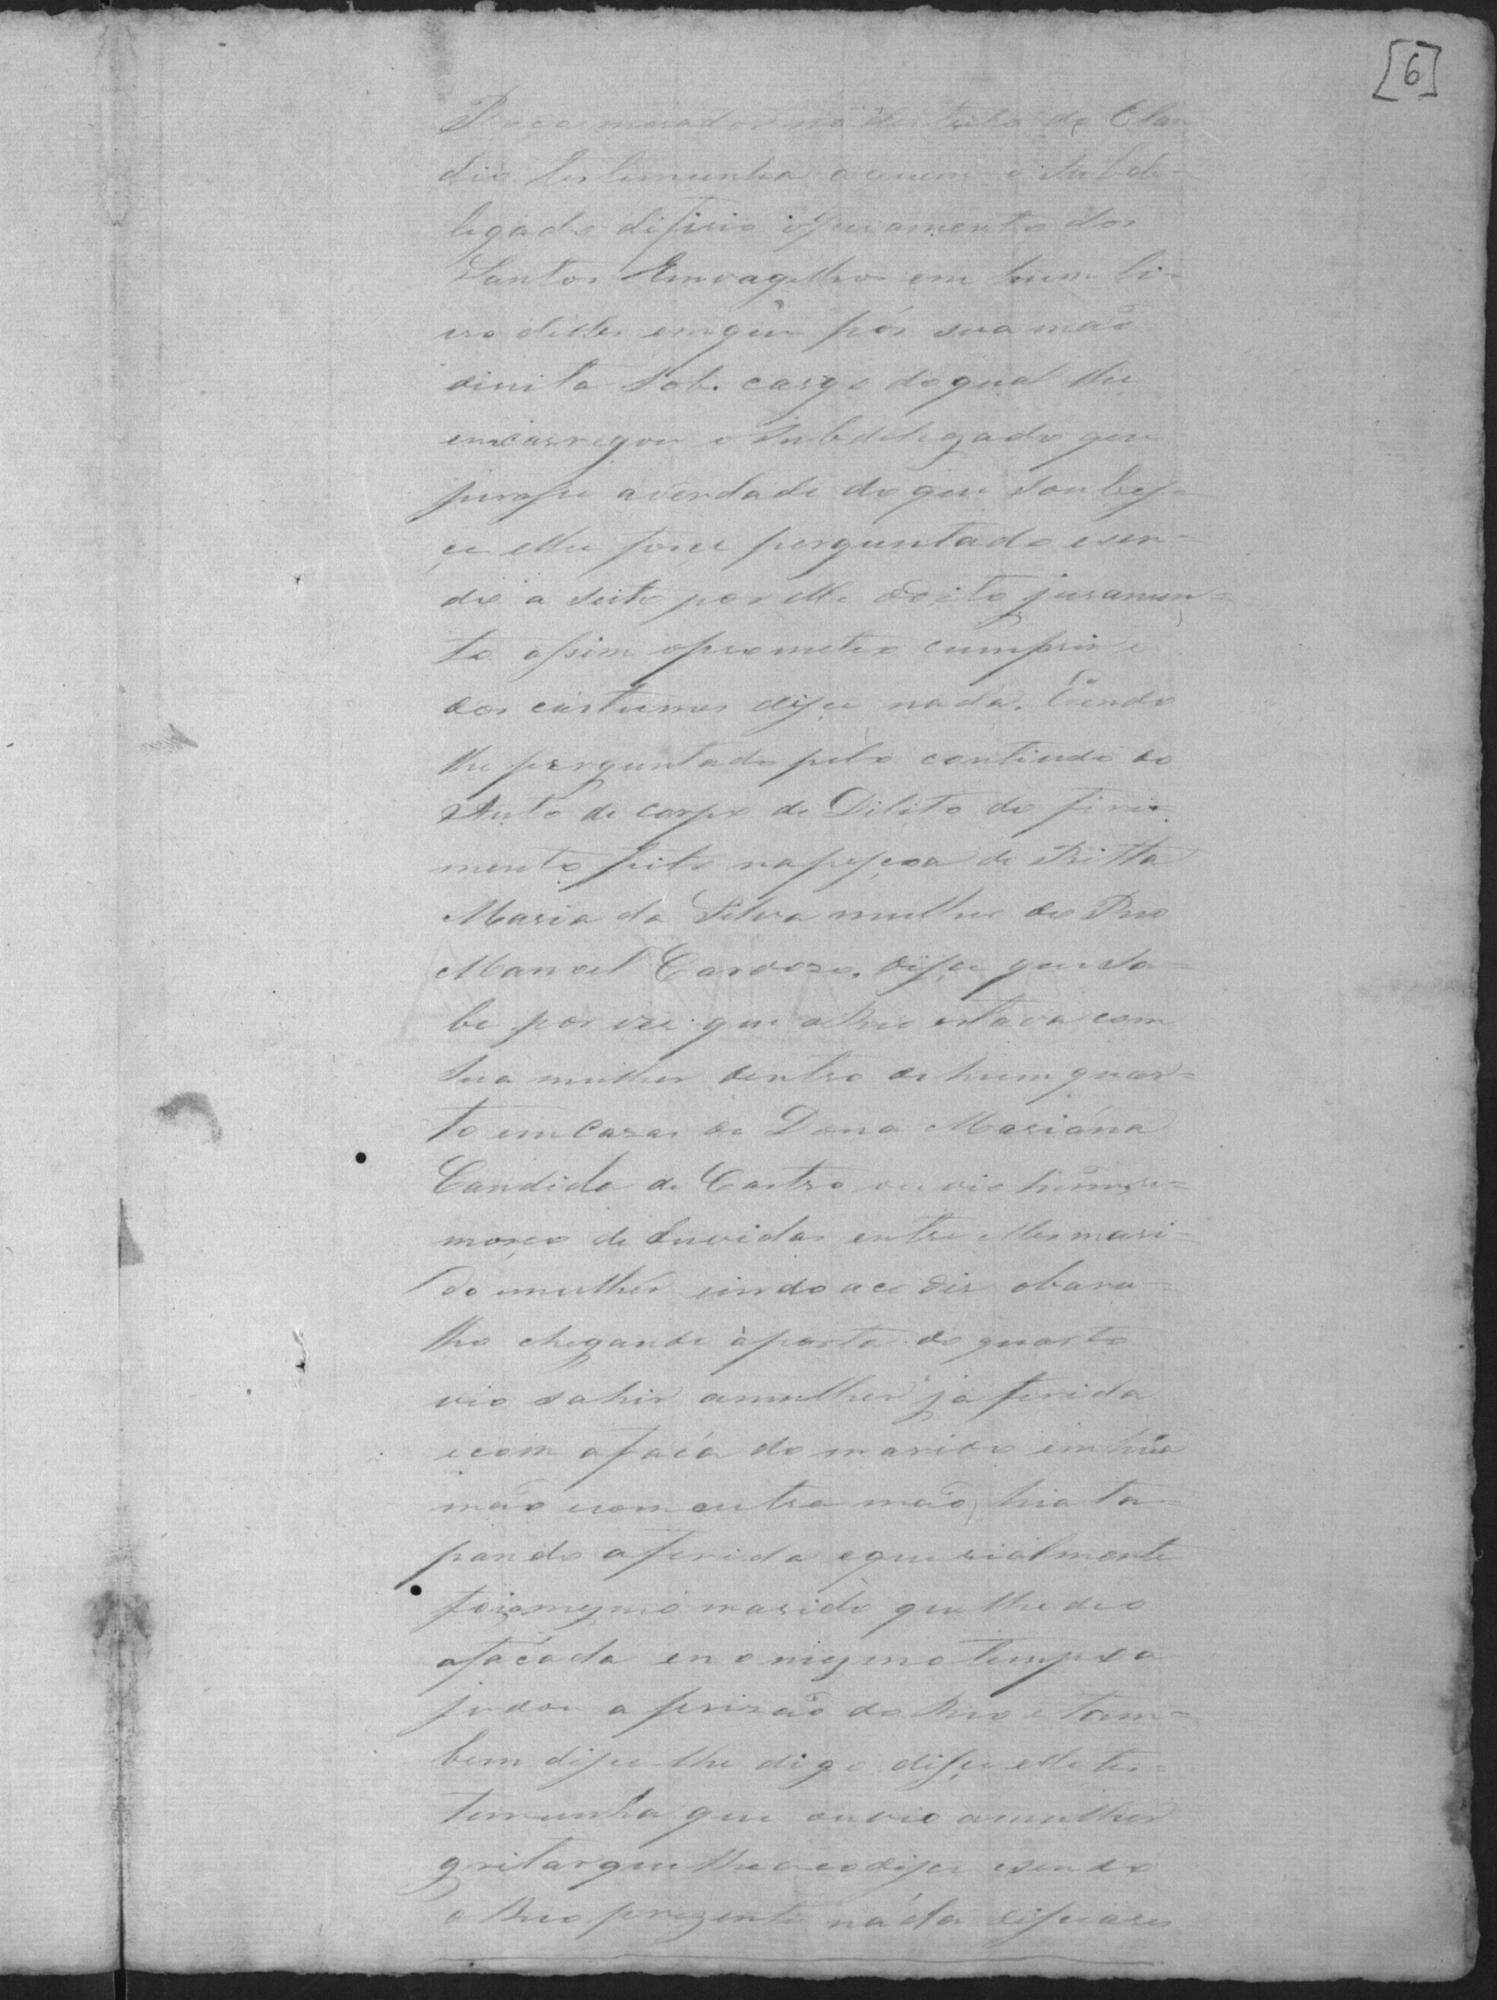 [6]
Roça morador no destrito de Clau
dio testemunha a quem o Subde-
legado difirio o juramento dos
Santos Envagelhos em hum li-
vro delles emque pós sua mão
direita sob. cargo doqual lhe
emcarregou o Subdelegado que
jurase averdade doque soubes-
çe elhe foçe perguntado esen-
do a seito por elle doito juramen-
to asim oprometeo cumprir e
dos custumes dise nada. Cendo
lhe perguntado pelo contiudo do
Auto de corpo de Dilito do firi-
mento feito napesçoa de Ritta
Maria da Silva mulher do Reo
Manoel Cardozo, dise que sa-
be por ver que o Reo estava com
sua mulher dentro de hum quar-
to em Caza de Dona Mariána
Candida de Castro ouvio hum ru-
morço de duvidas entre elles mari-
do emulher eindo acodir obaru-
lho chegando áporta do quarto
vio sahir amulher já ferida
ecom afaca do marido em hua
mão ecom outra mão hia ta-
pando aferida eque rialmente
foi omesmo marido que lhe deo
afacada eno mesmo tempo a
judou a prizão do Reo e tam-
bem dise lhe digo dise elle tes-
temunha que ouvio amulher
gritar que lhe acodise esendo
o Reo prezente nada dise ares